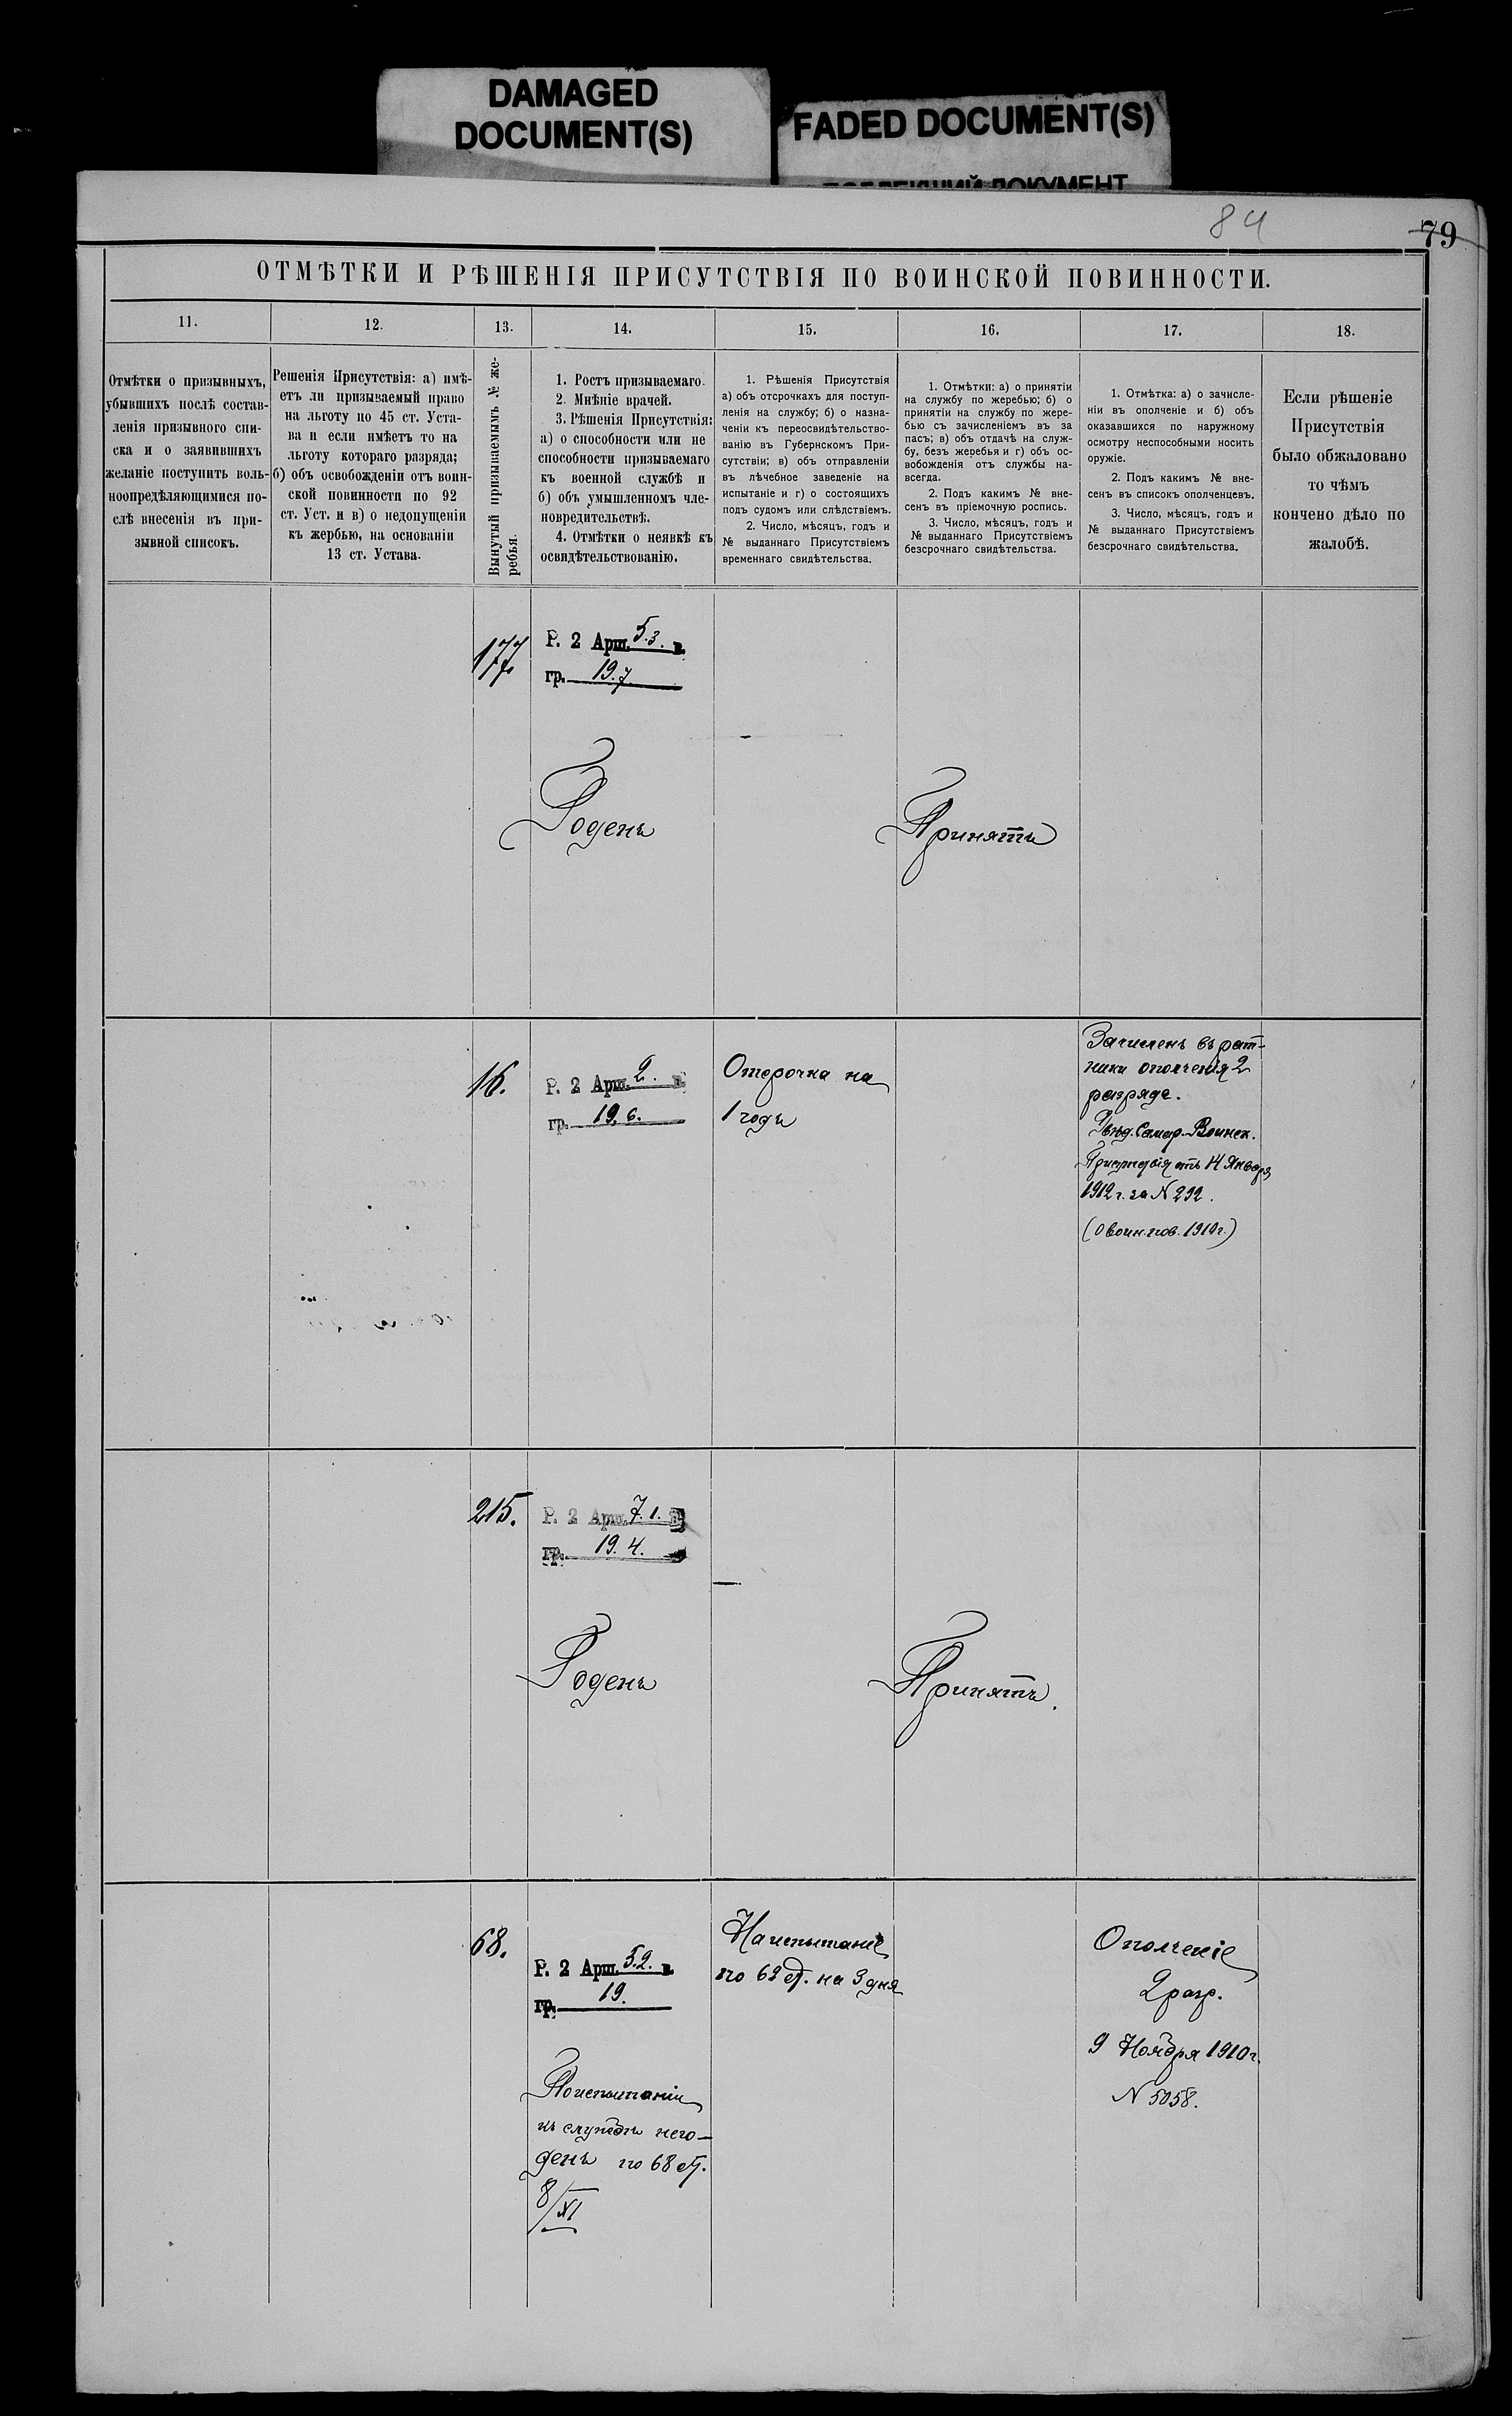 DAMAGED
DOCUMENT(S)
FADED DOCUMENT(S)
ДОКУМЕНТ
84
79
ОТМѢТКИ И РѢШЕНІЯ ПРИСУТСТВІЯ ПО ВОИНСКОЙ ПОВИННОСТИ.
11.
12.
13.
14.
15.
16.
17.
18.
Отмѣтки о призывныхъ,
убывшихъ послѣ состав-
ленія призывного спи-
ска и о заявившихъ
желаніе поступить воль-
ноопредѣляющимися по-
слѣ внесенія въ при-
зывной списокъ.
Решенія Присутствія: а) имѣ-
етъ ли призываемый право
на льготу по 45 ст. Уста-
ва и если имѣетъ то на
льготу котораго разряда;
б) объ освобожденіи отъ воин-
ской повинности по 92
ст. Уст. и в) о недопущеніи
къ жербью, на основаніи
13 ст. Устава.
Вынутый призываемымъ № же-
ребья.
1. Ростъ призываемаго.
2. Мнѣніе врачей.
3. Рѣшенія Присутствія:
а) о способности или не
способности призываемаго
къ военной службѣ и
б) объ умышленномъ чле-
новредительствѣ.
4. Отмѣтки о неявкѣ къ
освидѣтельствованію.
1. Рѣшенія Присутствія
а) объ отсрочкахъ для поступ-
ленія на службу; б) о назна-
ченіи къ переосвидѣтельство-
ванію въ Губернскомъ При-
сутствіи; в) объ отправленіи
въ лѣчебное заведеніе на
испытаніе и г) о состоящихъ
подъ судомъ или слѣдствіемъ.
2. Число, мѣсяцъ, годъ и
№ выданнаго Присутствіемъ
временнаго свидѣтельства.
1. Отмѣтки: а) о принятіи
на службу по жеребью; б) о
принятіи на службу по жере-
бью съ зачисленіемъ въ за
пасъ; в) объ отдачѣ на служ-
бу, безъ жеребья и г) объ ос-
вобожденія отъ службы на-
всегда.
2. Подъ какимъ № вне-
сенъ въ пріемочную роспись.
3. Число, мѣсяцъ, годъ и
№ выданнаго Присутствіемъ
безсрочнаго свидѣтельства.
1. Отмѣтка: а) о зачисле-
ніи въ ополченіе и б) объ
оказавшихся по наружному
осмотру неспособными носить
оружіе.
2. Подъ какимъ № вне-
сенъ въ списокъ ополченцевъ.
3. Число, мѣсяцъ, годъ и
№ выданнаго Присутствіемъ
безсрочнаго свидѣтельства.
Если рѣшеніе
Присутствія
было обжаловано
то чѣмъ
кончено дѣло по
жалобѣ.
177.
Р. 2 Арш. 5.3. в.
гр. 19.7
Годенъ
Принятъ
16.
Р. 2 Арш. 2. в.
гр. 19.6.
Отсрочка на
1 годъ
Зачисленъ въ рат-
ники ополченія 2
разряда.
Увѣд. Самар. Воинск.
Присутствія отъ 14 Января
1912 г. за N 292.
(О воин. пов. 1910 г.)
215.
Р. 2 Арш. 7.1. в.
гр. 19.4.
Годенъ
Принятъ.
68.
Р. 2 Арш. 5.2. в.
гр. 19.
По испытаніи
къ службѣ него-
денъ по 68 ст.
8/XI
На испытаніе
по 62 ст. на 3 дня
Ополченіе
2 разр.
9 Ноября 1910 г.
N 5058.